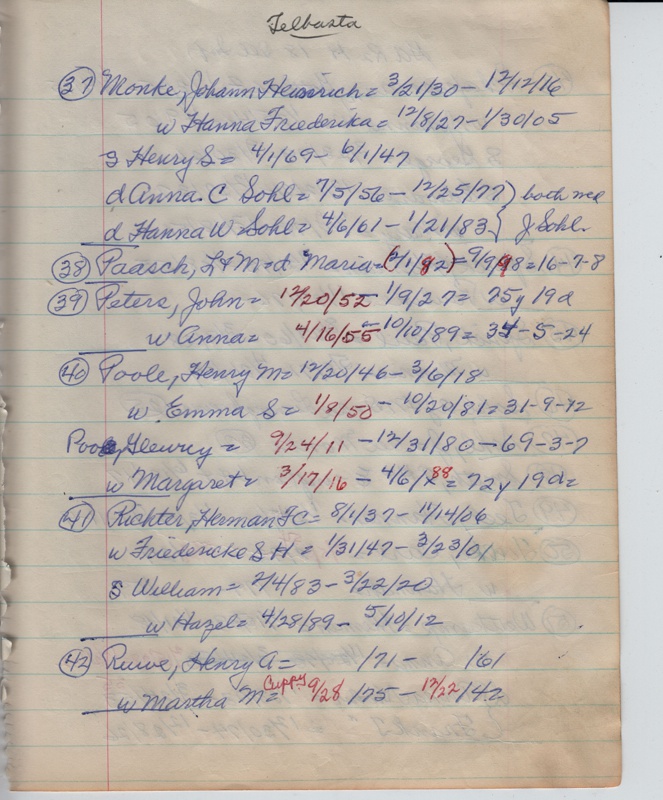 Telbasta
37 Monke, Johann Heinrich = 3/21/30 - 12/12/16
w Hanna Friederika = 12/8/27 - 1/30/05
S Henry S. = 4/1/69 - 6/1/47
d Anna. C Sohl = 7/5/56 - 12/25/77 } both md
d Hanna W Sohl = 4/6/61 - 1/21/83 } J. Sohl.
38 Paasch, L & M = d Maria = (2/1/82) = 9/9/98 = 16-7-8
39 Peters, John = 12/20/52 - 1/9/27 = 75y 19d
w Anna = 4/16/55 - 10/10/89 = 34-5-24
40 Poole, Henry M = 12/20/46 - 3/6/18
w. Emma S = 1/8/50 - 10/20/81 = 31-9-12
Henry = 9/24/11 - 12/31/80 - 69-3-7
w Margaret = 3/17/16 - 4/6/88 = 72y 19d =
41 Richter, Herman FC = 8/1/37 - 11/14/06
w Friedericke S H = 1/31/47 - 3/23/01
S William = 2/4/83 - 3/22/20
w Hazel = 4/28/89 - 5/10/12
42 Ruwe, Henry A = /71 - /61
w Martha M = Cuppy 9/28 /75 - 12/22/42